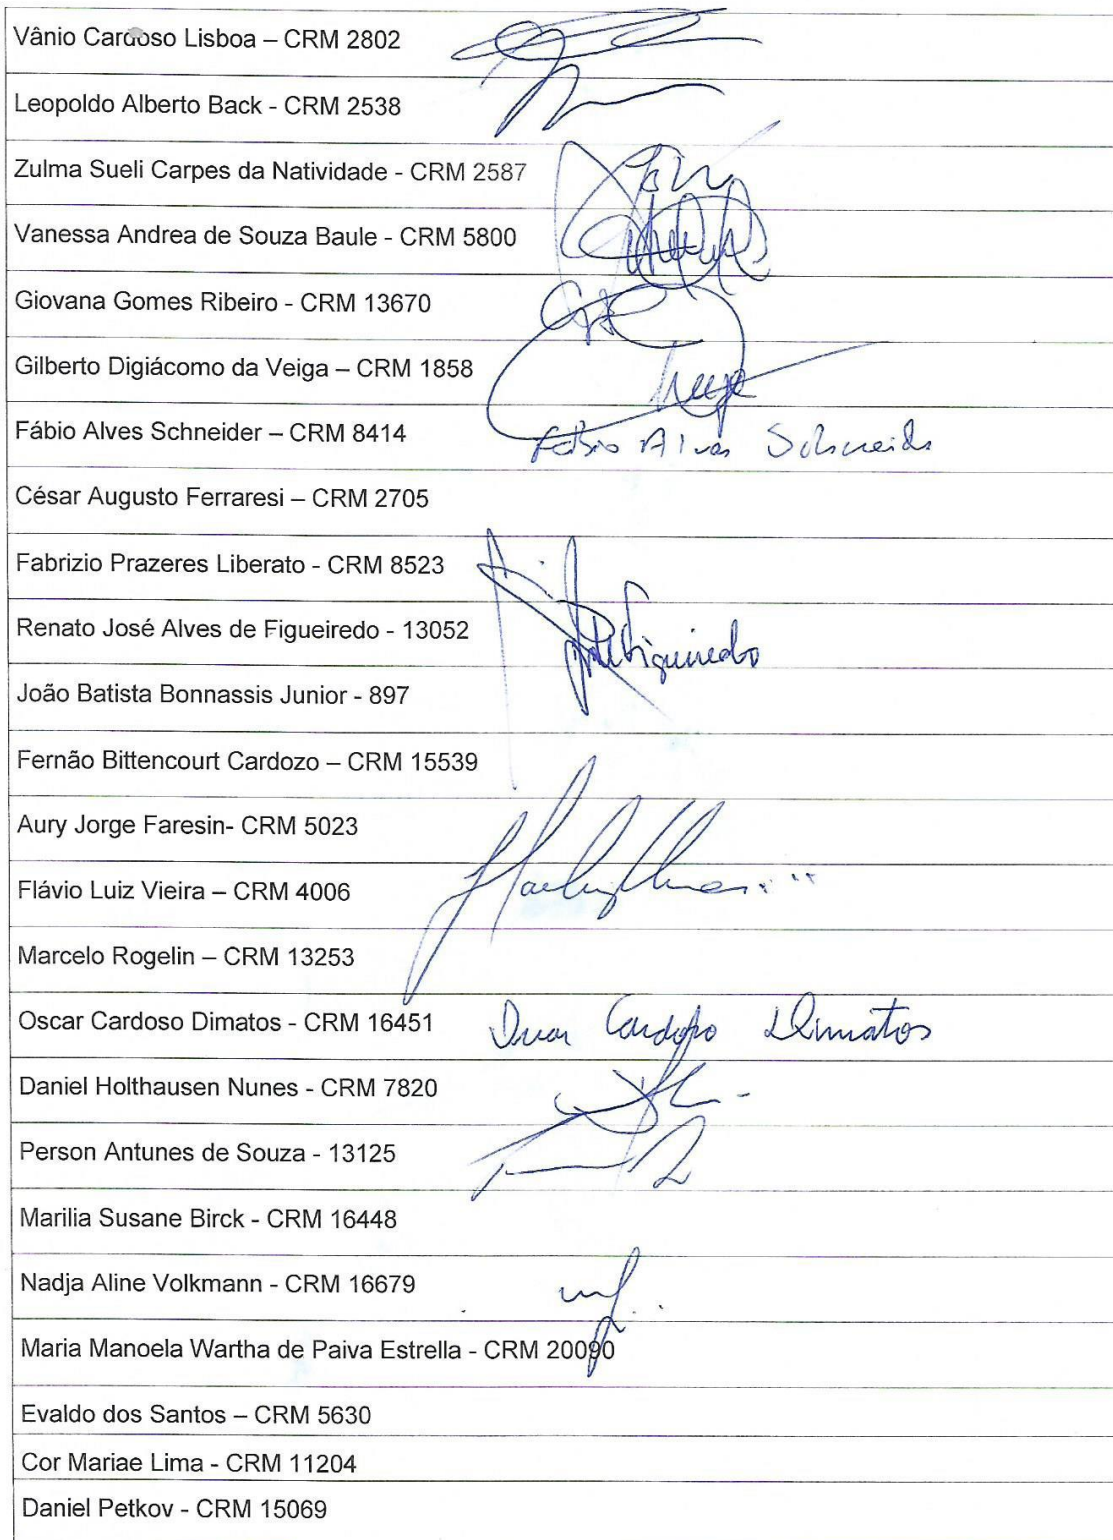 Vânio Cardoso Lisboa – CRM 2802
Leopoldo Alberto Back - CRM 2538
Zulma Sueli Carpes da Natividade - CRM 2587
Vanessa Andrea de Souza Baule - CRM 5800
Giovana Gomes Ribeiro - CRM 13670
Gilberto Digiácomo da Veiga – CRM 1858
Fábio Alves Schneider – CRM 8414 Fabio Alves Schneider
César Augusto Ferraresi – CRM 2705
Fabrizio Prazeres Liberato - CRM 8523
Renato José Alves de Figueiredo - 13052 Figueiredo
João Batista Bonnassis Junior - 897
Fernão Bittencourt Cardozo – CRM 15539
Aury Jorge Faresin- CRM 5023
Flávio Luiz Vieira – CRM 4006
Marcelo Rogelin – CRM 13253
Oscar Cardoso Dimatos - CRM 16451 Oscar Cardoso Dimatos
Daniel Holthausen Nunes - CRM 7820
Person Antunes de Souza - 13125
Marilia Susane Birck - CRM 16448
Nadja Aline Volkmann - CRM 16679
Maria Manoela Wartha de Paiva Estrella - CRM 20090
Evaldo dos Santos – CRM 5630
Cor Mariae Lima - CRM 11204
Daniel Petkov - CRM 15069